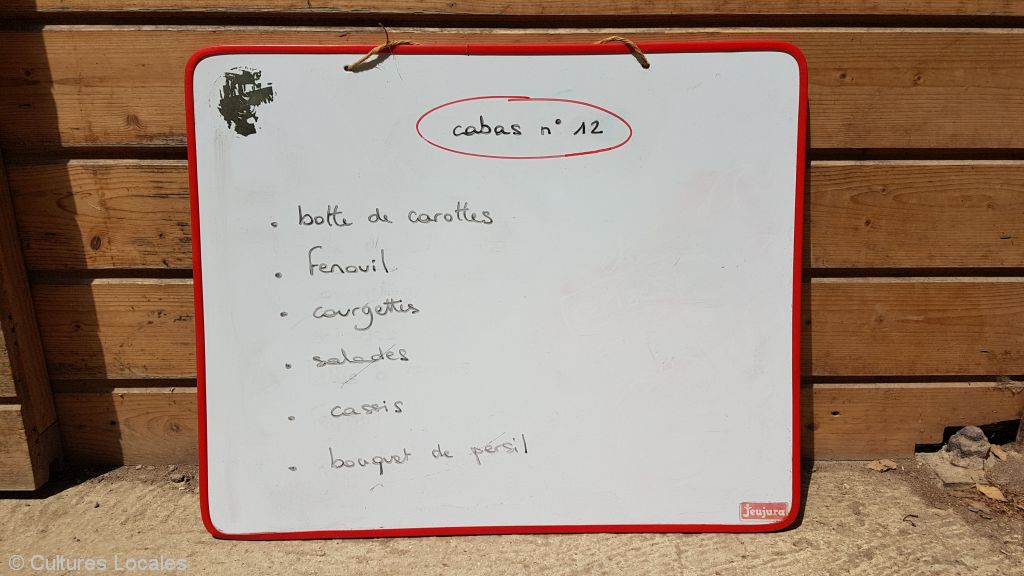 cabas n° 12
• botte de carottes
• Fenouil
• courgettes
• salades
• cassis
• bouquet de persil
Jeujura
© Cultures Locales